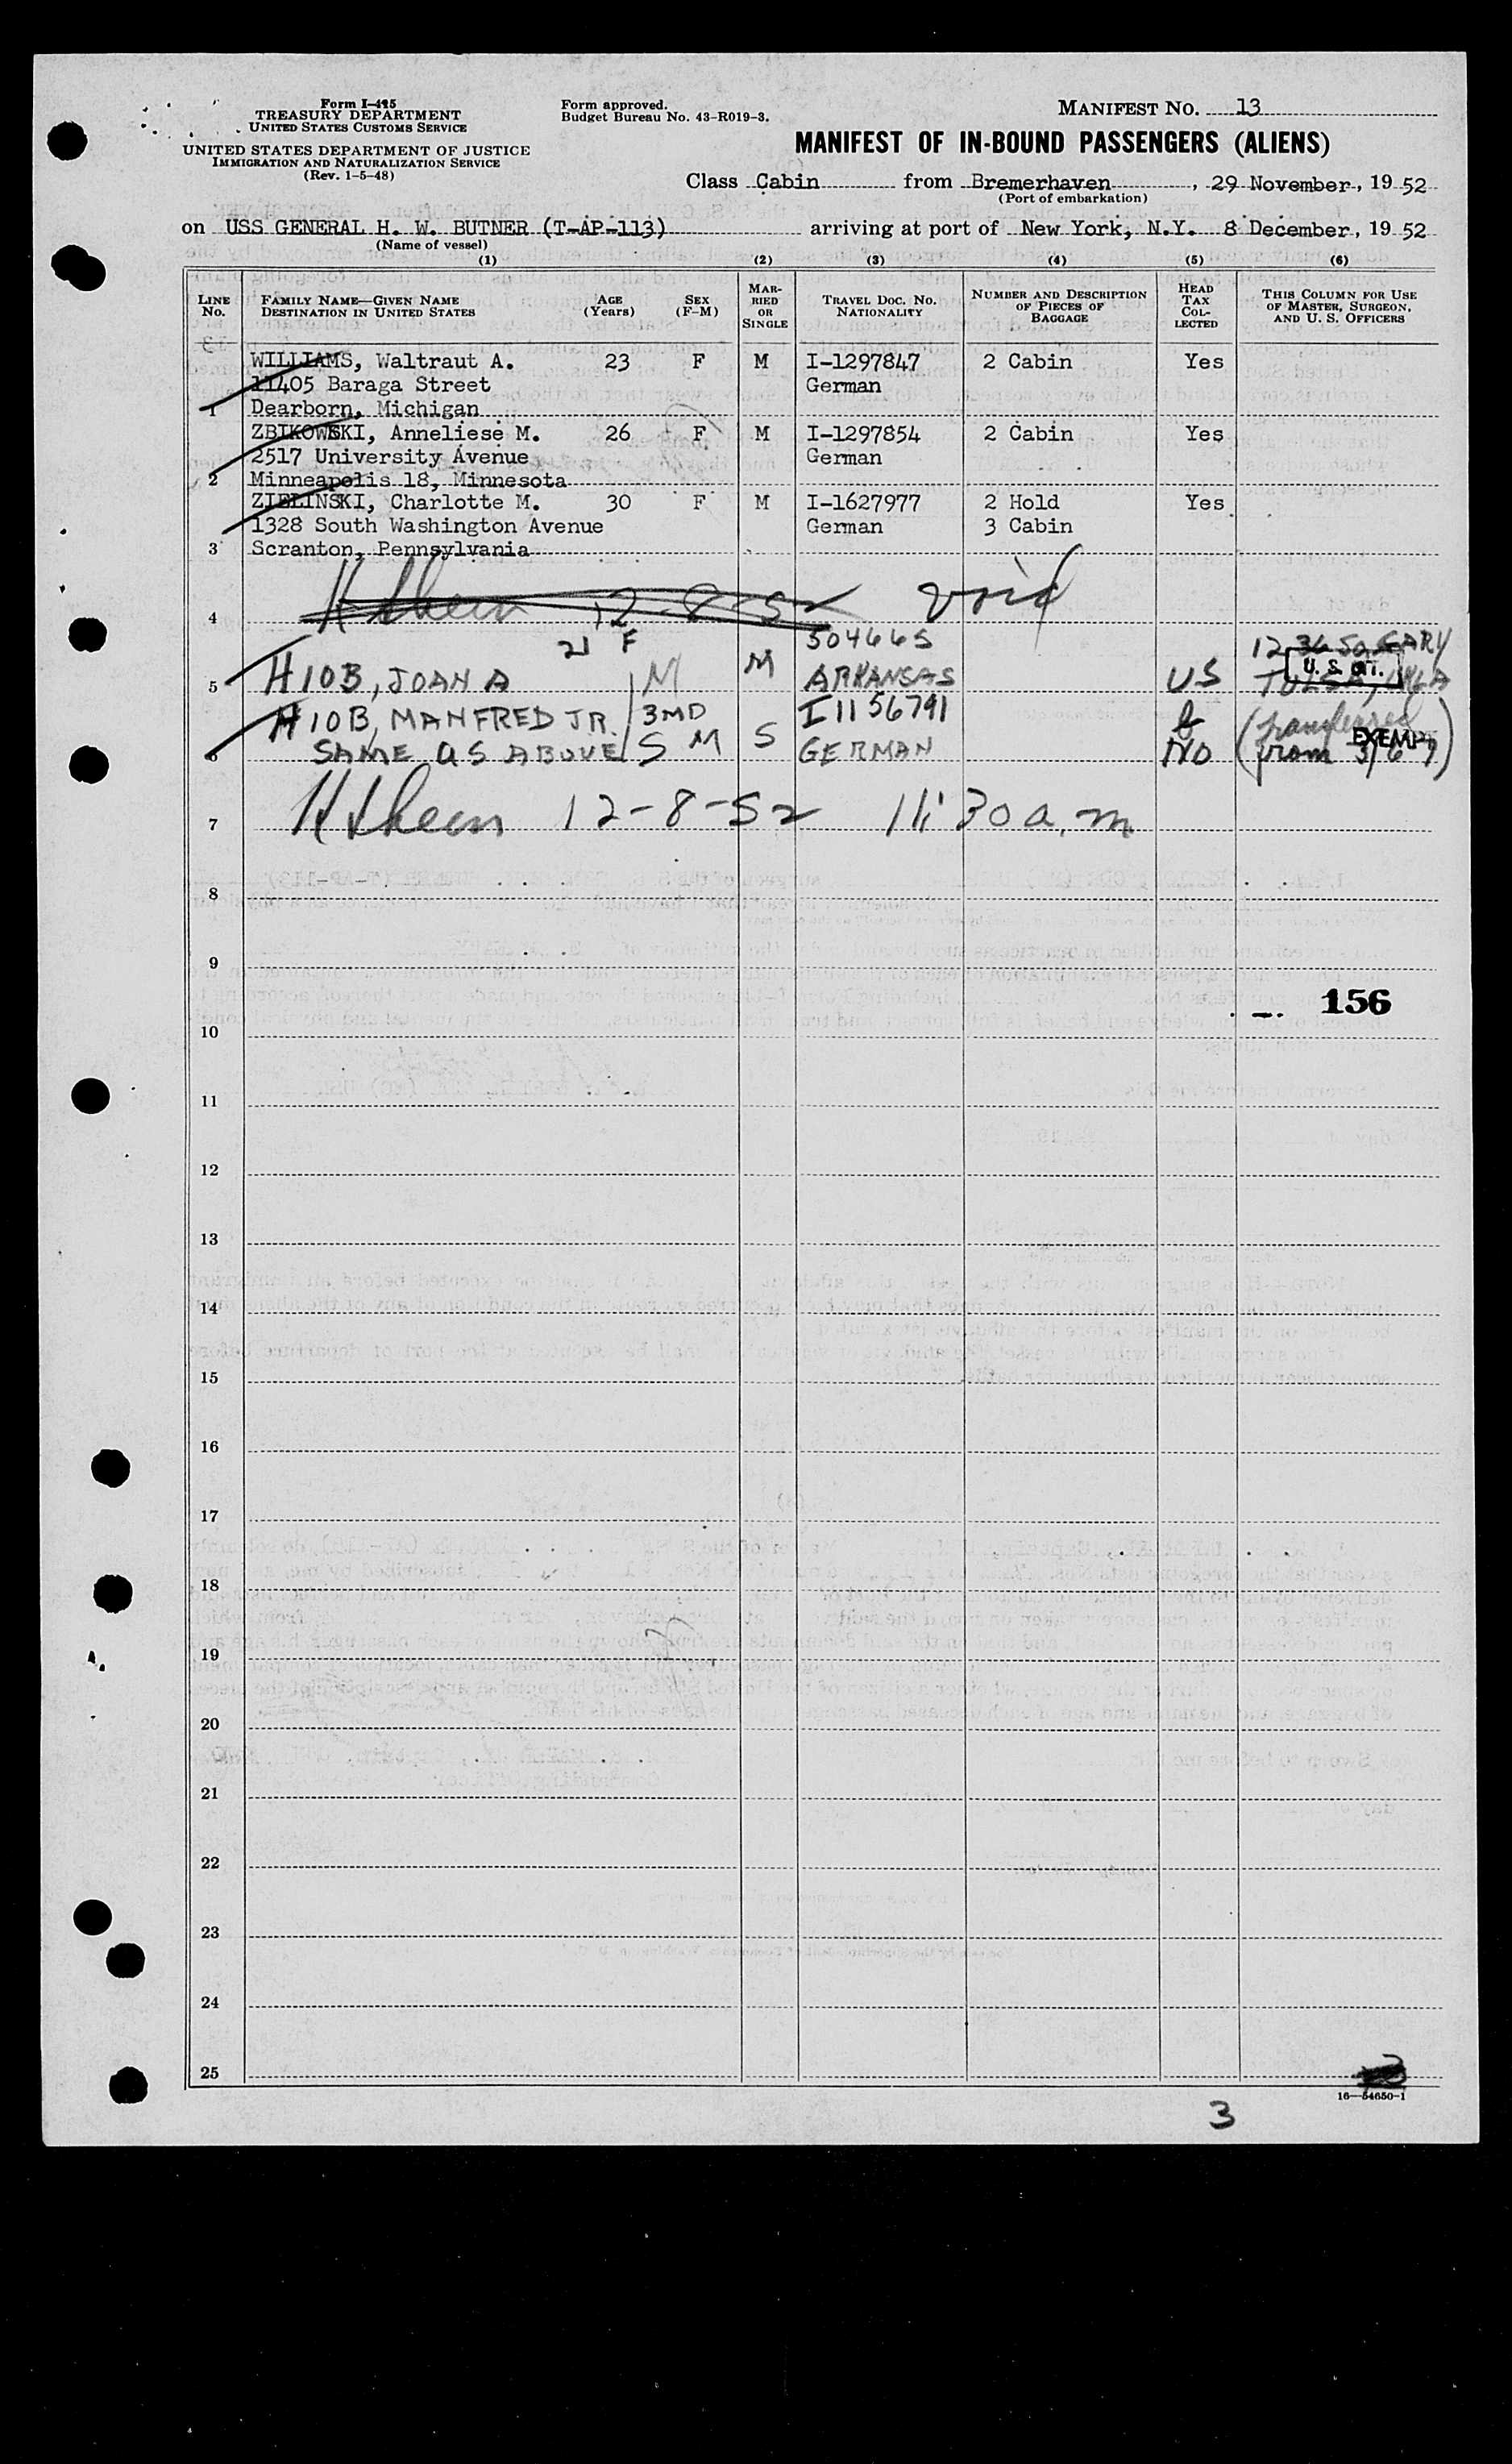 Form I-415
TREASURY DEPARTMENT
UNITED STATES CUSTOMS SERVICE
UNITED STATES DEPARTMENT OF JUSTICE
IMMIGRATION AND NATURALIZATION SERVICE
(Rev. 1-5-48)
Form approved.
Budget Bureau No. 43-R019-3.
MANIFEST NO. 13
MANIFEST OF IN-BOUND PASSENGERS (ALIENS)
Class Cabin from Bremerhaven, 29 November, 19 52
(Port of embarkation)
on USS GENERAL H. W. BUTNER (T-AP-113) arriving at port of New York, N.Y. 8 December, 19 52
(Name of vessel)
(1) (2) (3) (4) (5) (6)
LINE No.
FAMILY NAME—GIVEN NAME
DESTINATION IN UNITED STATES
AGE (Years)
SEX (F-M)
MARRIED OR SINGLE
TRAVEL DOC. NO. NATIONALITY
NUMBER AND DESCRIPTION OF PIECES OF BAGGAGE
HEAD TAX COLLECTED
THIS COLUMN FOR USE OF MASTER, SURGEON, AND U. S. OFFICERS
WILLIAMS, Waltraut A. 23 F M I-1297847 2 Cabin Yes
11405 Baraga Street German
1 Dearborn, Michigan
ZBIKOWSKI, Anneliese M. 26 F M I-1297854 2 Cabin Yes
2517 University Avenue German
2 Minneapolis 18, Minnesota
ZIELINSKI, Charlotte M. 30 F M I-1627977 2 Hold Yes
1328 South Washington Avenue German 3 Cabin
3 Scranton, Pennsylvania
4 12-8-52 void
21 F 504665
5 H10B, JOAN A M M ARKANSAS US
U. S. CIT.
H10B, MANFRED JR. 3MD I1156791
6 SAME AS ABOVE S M S GERMAN NO (transferred from 3/6-7)
EXEMPT
7 12-8-52 11:30 a.m.
8
9
156
10
11
12
13
14
15
16
17
18
19
20
21
22
23
24
25
16—54650-1
3